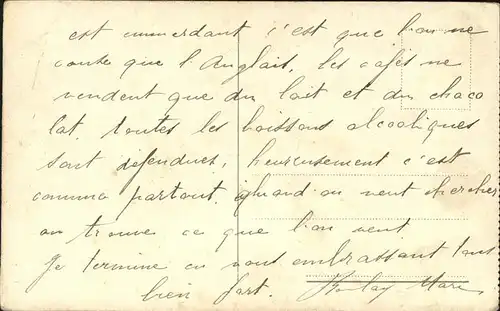 est emmerdant c'est que l'on ne
cause que l'Anglais, les cafés ne
vendent que du lait et du choco
lat. toutes les boissons alcooliques
sont défendues, heureusement c'est
comme partout. Quand on veut chercher
on trouve ce que l'on veut
Je termine en vous embrassant tous
bien fort.